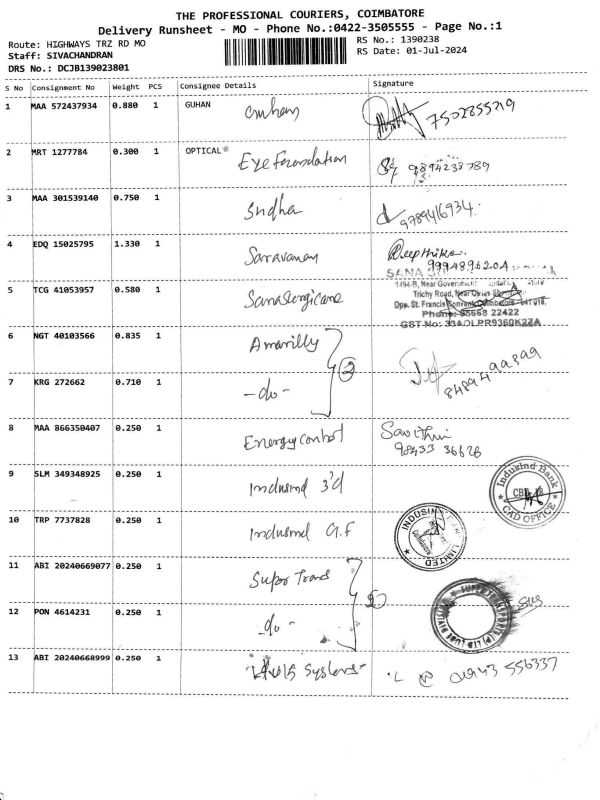 THE PROFESSIONAL COURIERS, COIMBATORE
Delivery Runsheet - MO - Phone No.:0422-3505555 - Page No.:1
Route: HIGHWAYS TRZ RD MO
Staff: SIVACHANDRAN
DRS No.: DCJB139023801
RS No.: 1390238
RS Date: 01-Jul-2024
S No Consignment No Weight PCS Consignee Details Signature
1 MAA 572437934 0.880 1 GUHAN Guhan 7502855219
2 MRT 1277784 0.300 1 OPTICAL Eye Foundation 9894238789
3 MAA 301539140 0.750 1 Sudha 9789416934
4 EDQ 15025795 1.330 1 Saravanan Deepthika
5 TCG 41053957 0.580 1 Sana Surgicare
SANA
1494-B, Near Government
Trichy Road,
Opp. St. Francis Convent, Coimbatore - 641 018.
Phone: 95668 22422
GST No: 33AOLPR9360K2ZA
6 NGT 40103566 0.835 1 Amarilly
2
8489499899
7 KRG 272662 0.710 1 -do-
8 MAA 866350407 0.250 1 Energy control Savithri
98433 36626
9 SLM 349348925 0.250 1 Indusind 3'd
Indusind Bank
CAD OFFICE
10 TRP 7737828 0.250 1 Indusind G.F
INDUSIND
LIMITED
11 ABI 20240669077 0.250 1 Super Trans
12 PON 4614231 0.250 1 -do-
13 ABI 20240668999 0.250 1 Systems 556337